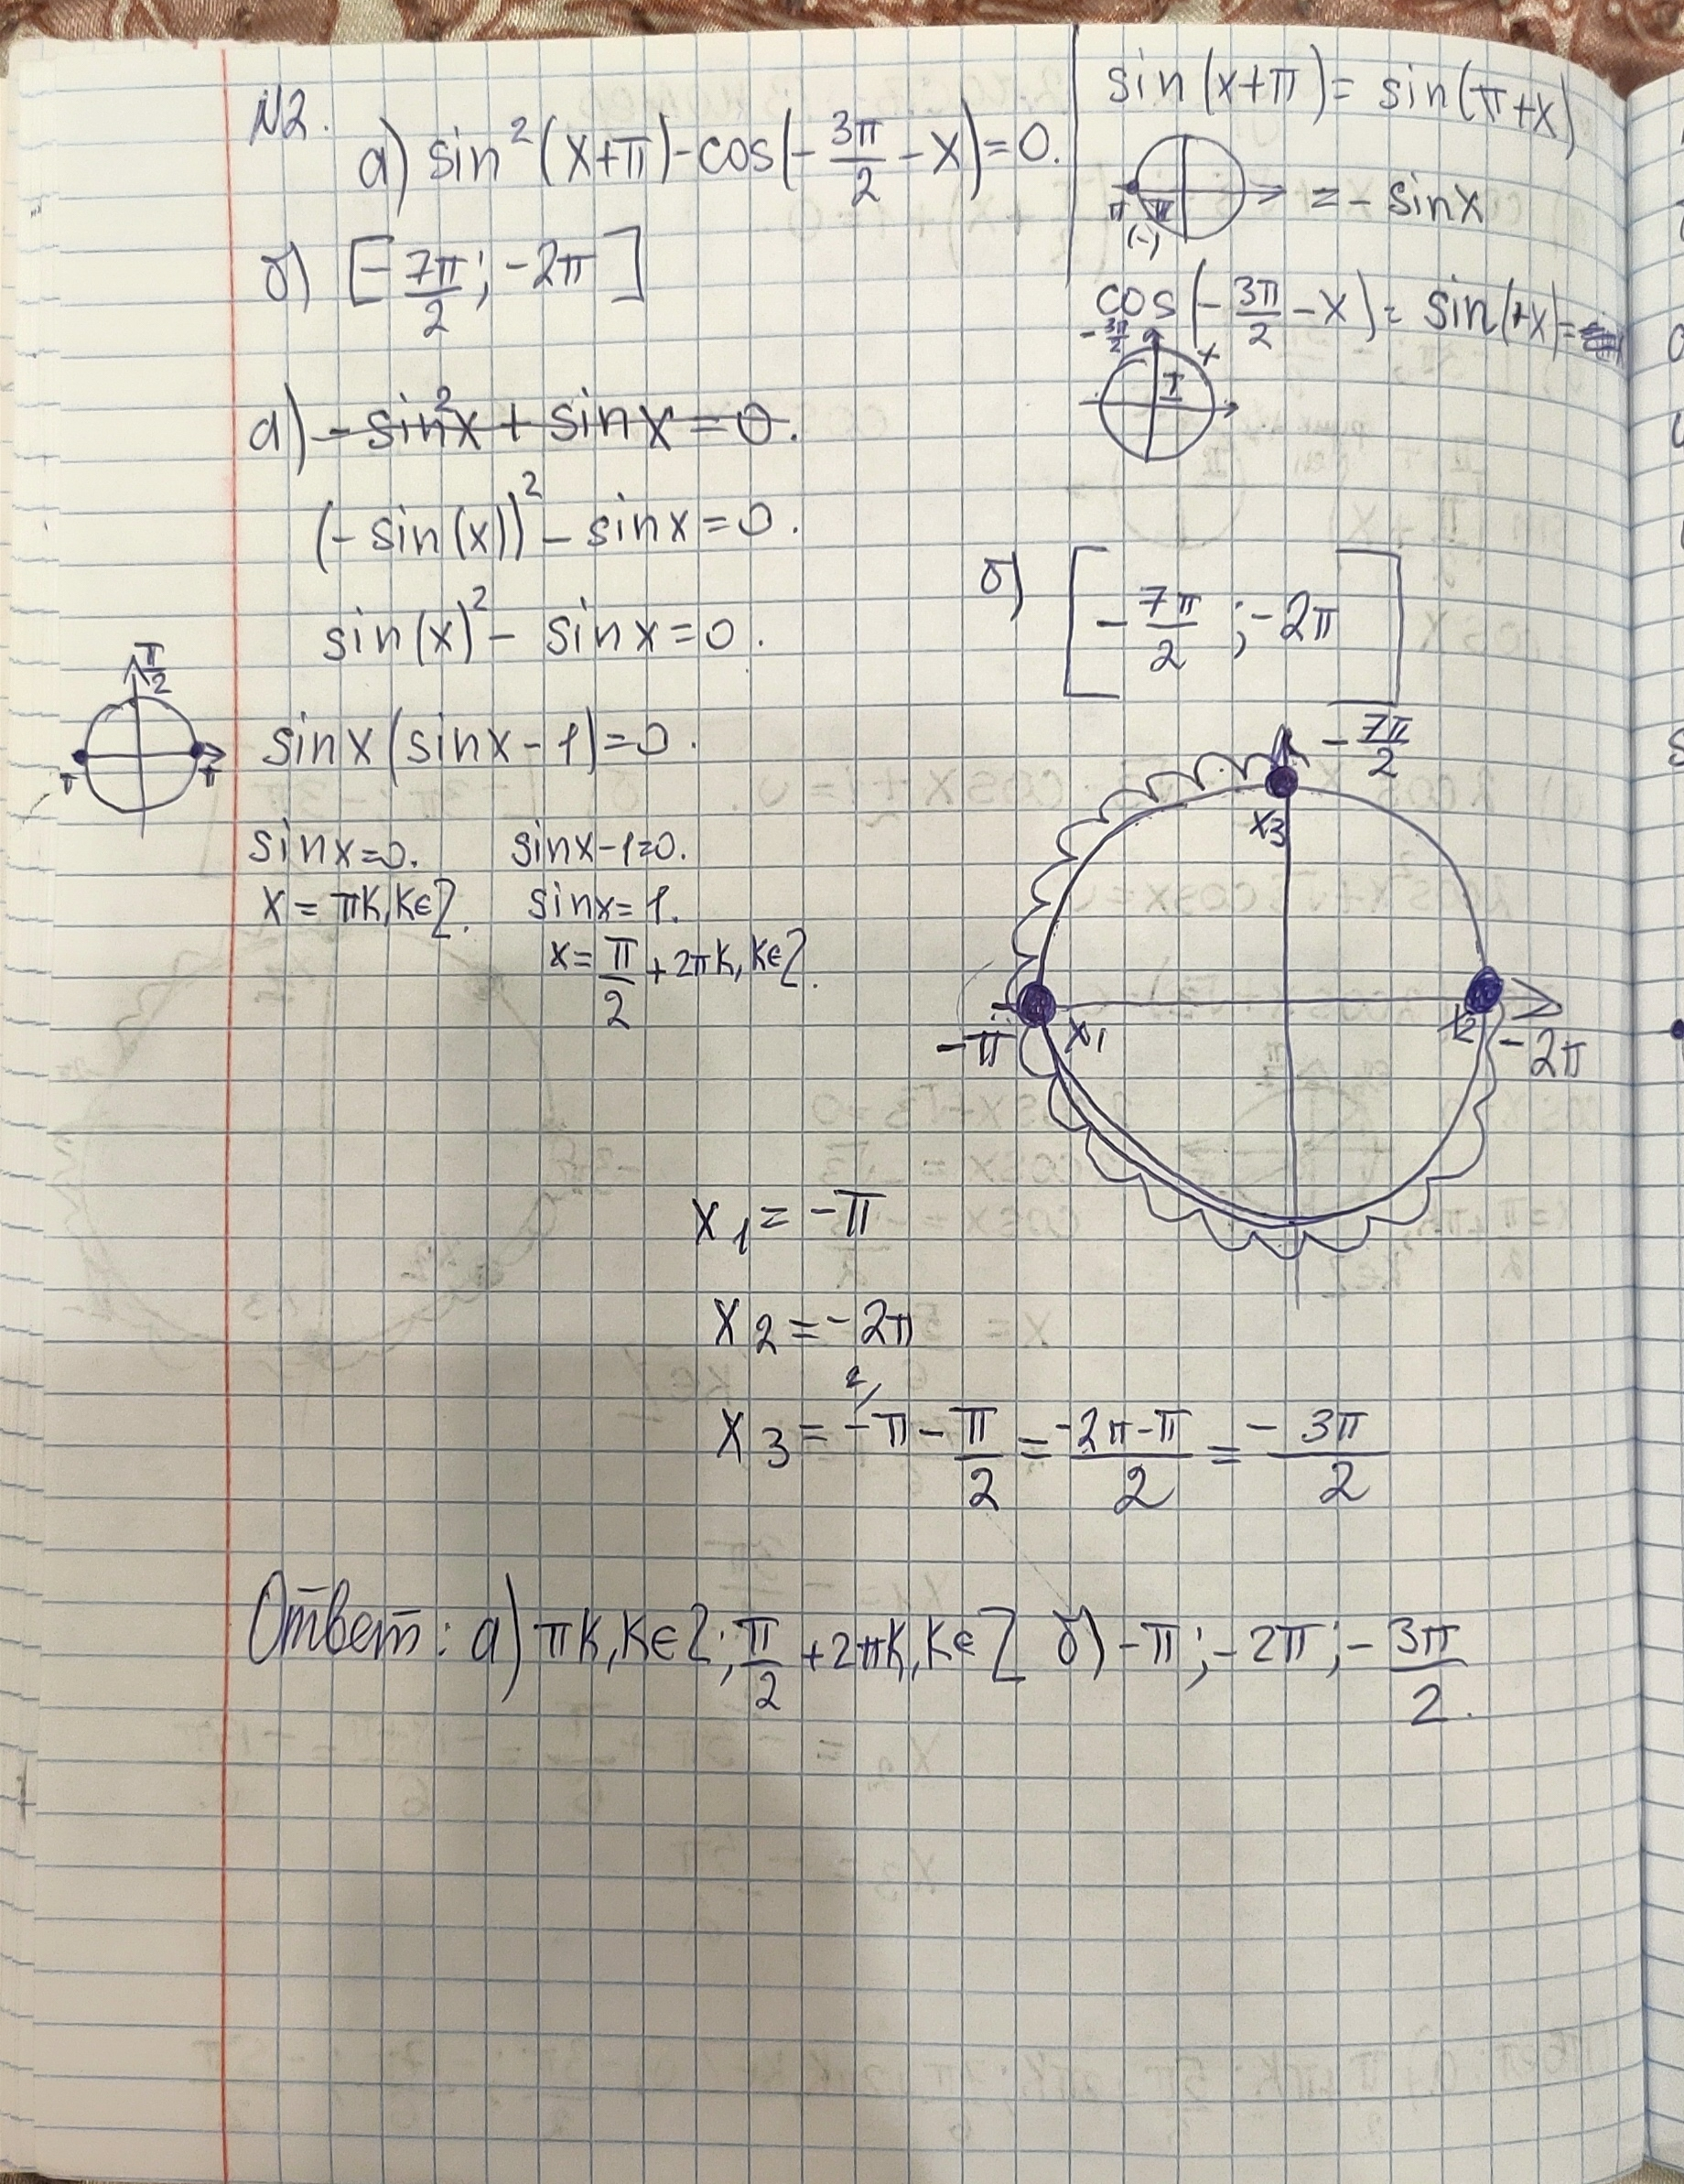 N2.
а) sin²(x+π)-cos(-3π/2-x)=0.
б) [-7π/2; -2π]
sin(x+π)= sin(π+x)
π III
(-)
= - sinx
cos(-3π/2-x)= sin(+x)=
-3π/2
I +
а) -sin²x + sinx=0.
(-sin(x))² - sinx=0.
sin(x)² - sinx=0.
π/2
π π
sinx(sinx-1)=0.
sinx=0. sinx-1=0.
x= πk, k∈Z. sinx=1.
x=π/2+2πk, k∈Z.
б) [-7π/2; -2π]
-7π/2
x3
-π x1 x2 -2π
x1= -π
x2= -2π
x3= -π-π/2=(-2π-π)/2=-3π/2
Ответ: а) πk, k∈Z; π/2+2πk, k∈Z б) -π; -2π; -3π/2.